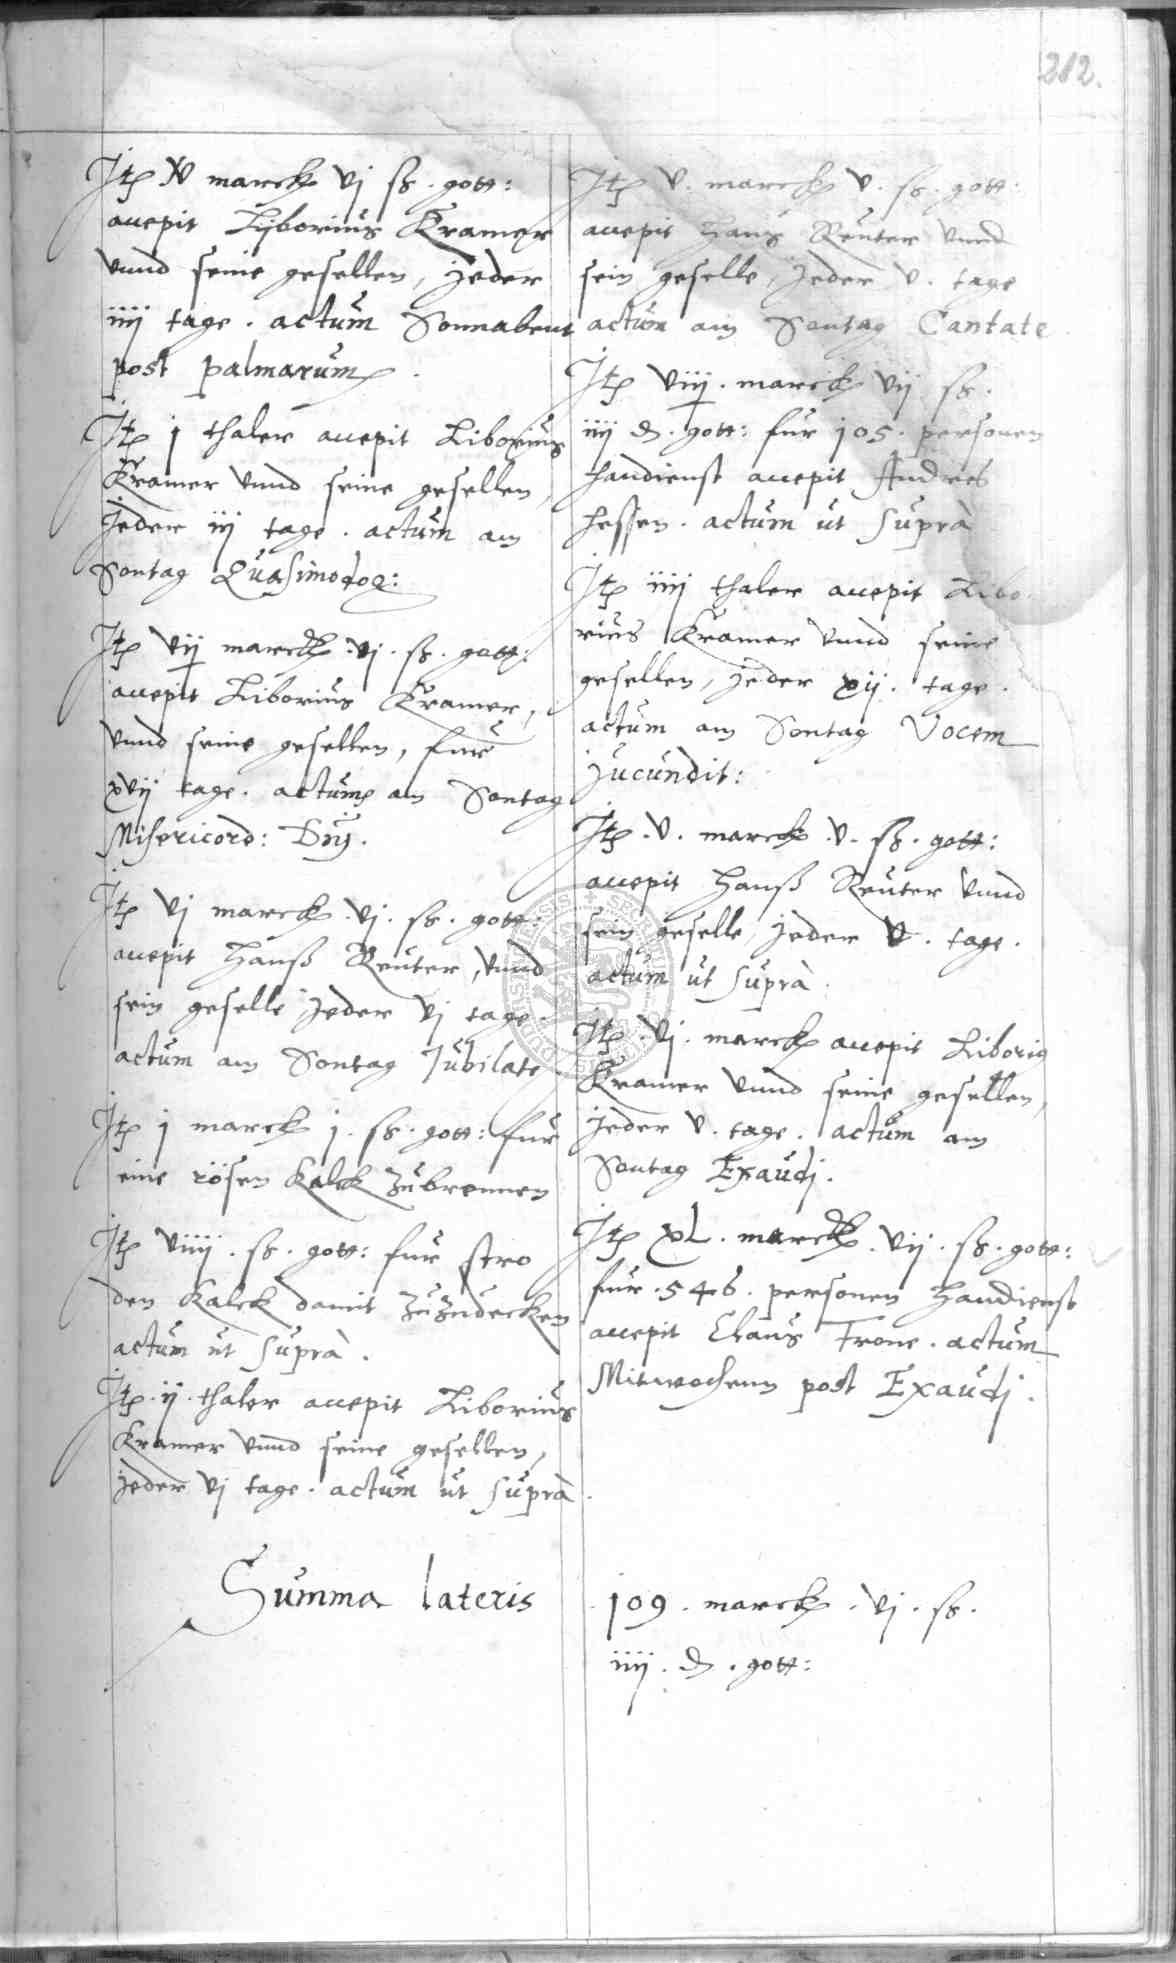 212.
Jtem XV marck vj ß. gott:
accepit Lijborius Kramer
vnnd seine gesellen, jeder
iiij tage. actum Sonnabent
post palmarum.
Jtem j thaler accepit Liborius
Kramer vnnd seine gesellen,
jeder iij tage. actum am
Sontag Quasimodog:
Jtem vij marck .vj. ß. gott:
accepit Liborius Kramer,
vnnd seine gesellen, fur
xvij tage. actum am Sontag
Misericord: Dnj.
Jtem vj marck .vj. ß. gott:
accepit Hanß Reuter, vnnd
sein geselle jeder vj tage.
actum am Sontag Jubilate
Jtem j marck j. ß. gott: fur
eine rösen Kalck zubrennen
Jtem viiij. ß. gott: fur stro
den Kalck damit zuzudecken
actum ut suprà.
Jtem .ij. thaler accepit Liborius
Kramer vnnd seine gesellen,
jeder vj tage. actum ut suprà.
Jtem v. marck v. ß. gott:
accepit Hans Reuter vnnd
sein geselle, jeder v. tage
actum am Sontag Cantate
Jtem viij. marck vij ß.
iiij d. gott: fur 105. personen
handienst accepit Andres
hessen. actum ut suprà
Jtem iiij thaler accepit Libo
rius Kramer vnnd seine
gesellen, jeder xij. tage.
actum am Sontag Vocem
jucundit:
Jtem .v. marck .v. ß. gott:
accepit Hanß Reuter vnnd
sein geselle, jeder v. tage.
actum ut suprà.
Jtem .vj. marck accepit Liborig
Kramer vnnd seine gesellen,
jeder v. tage. actum am
Sontag Exaudj.
Jtem XL. marck .vij. ß. gott:
fur .546. personen Handienst
accepit Claus Trone. actum
Mitwochenn post Exaudj.
Summa lateris 109. marck .vj. ß.
iiij. d. gott: